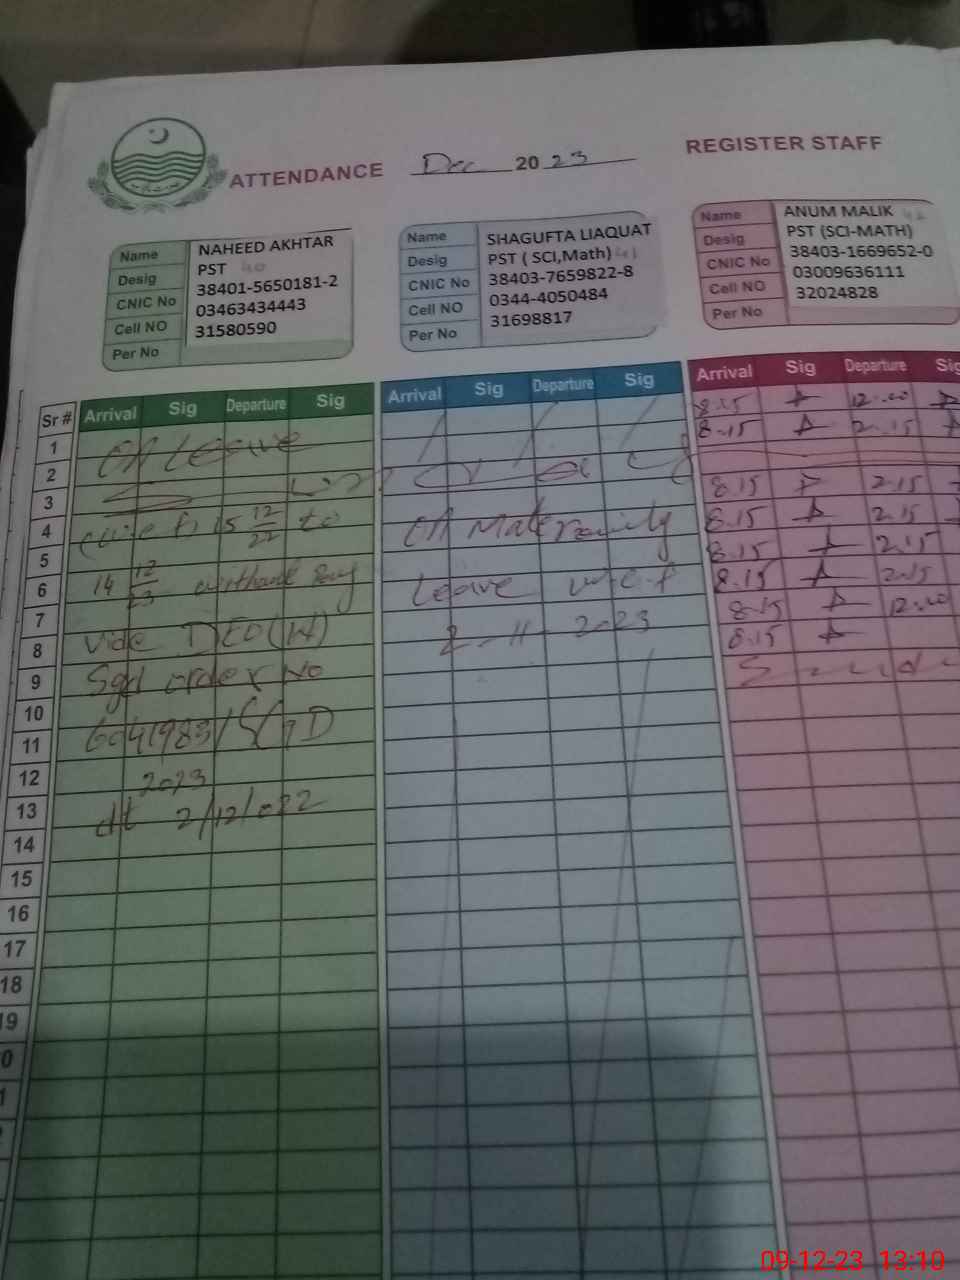 ATTENDANCE Dec 20 23 REGISTER STAFF
Name NAHEED AKHTAR
Desig PST 40
CNIC No 38401-5650181-2
Cell NO 03463434443
Per No 31580590
Name SHAGUFTA LIAQUAT
Desig PST ( SCI,Math) 41
CNIC No 38403-7659822-8
Cell NO 0344-4050484
Per No 31698817
Name ANUM MALIK 42
Desig PST (SCI-MATH)
CNIC No 38403-1669652-0
Cell NO 03009636111
Per No 32024828
Sr # Arrival Sig Departure Sig Arrival Sig Departure Sig Arrival Sig Departure Sig
1
2
3
4
5
6
7
8
9
10
11
12
13
14
15
16
17
18
19
On Leave
15 12/22 to
14 12/23 without pay
vide DEO (W)
Sgd order No
6041983/SGD
2023
dt 2/12/022
On Maternity
Leave w.e.f
2-11-2023
8.15 12:00
8.15 2.15
8.15 2.15
8.15 2.15
8.15 2.15
8.15 2.15
8.15 12.00
8.15
09-12-23 13:10